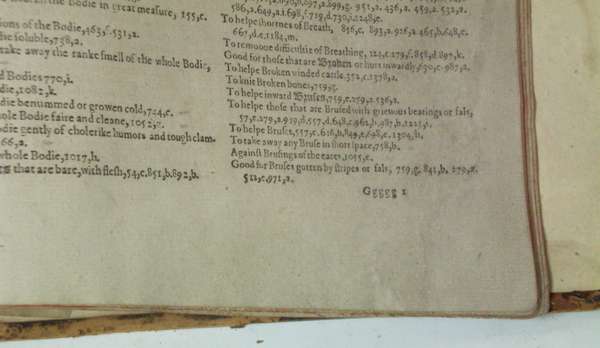 in the Bodie in great measure, 155,c.
ions of the Bodie, 463,f.531,a.
the soluble, 758,a.
take away the ranke smell of the whole Bodie,
d Bodies 770,i.
die, 1082,k.
die benummed or growen cold, 744,c.
hole Bodie faire and cleane, 1052,c.
die gently of cholerike humors and tough clam-
66,a.
whole Bodie, 1017,h.
that are bare, with flesh, 54,c.851,b.892,b.
586,a.649,a.i.698,f.719,d.730,i.1248,c.
To helpe shortnes of Breath, 856,c, 893,a.926,a.465,b.648,c.
667,d.c.1184,m.
To remooue difficultie of Breathing, 124,c.279,f.858,d.897,k.
Good for those that are Broken or hurt inwardly, 630,c.987,a.
To helpe Broken winded cattle. 352,c.1378,a.
To knit Broken bones, 759,g.
To helpe inward Bruses, 759,c.279,a.536,a.
To helpe those that are Brused with grieuous beatings or fals,
57,c.279,a.919,d.557,d.648,c.962,b.987,b.1225,i.
To helpe Bruses, 557,c.616,b.849,c.698,c.1304,h.
To take away any Bruse in short space, 758,b.
Against Brusings of the eares, 1055,c.
Good for Bruses gotten by stripes or fals, 759,g. 841,b. 279,a.
512,c.971,a.
Ggggg 1